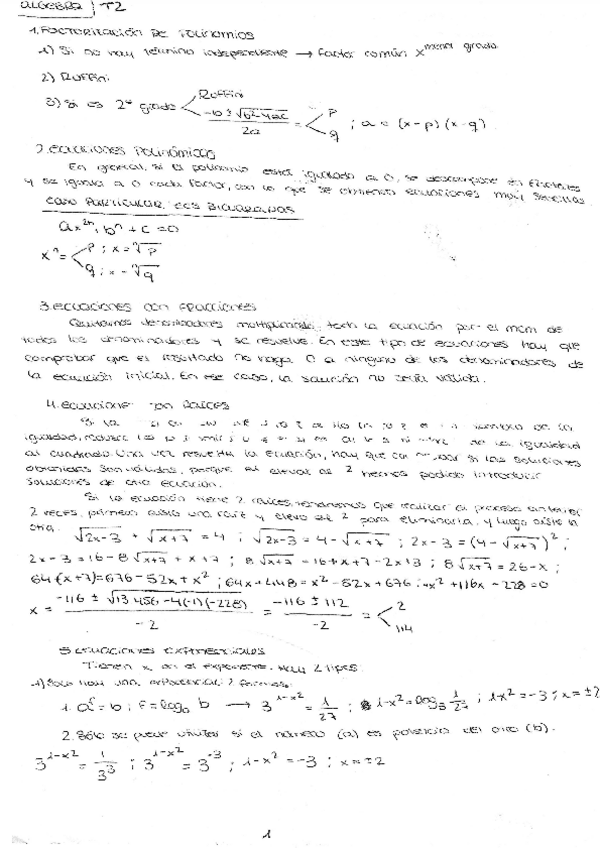 ALGEBRA T2
1. FACTORIZACIÓN DE POLINOMIOS
1) Si no hay término independiente → factor común x^menor grado
2) Ruffini
3) Si es 2º grado
Ruffini
-b ± √b²-4ac / 2a = p q ; a = (x-p)(x-q)
2. ECUACIONES POLINÓMICAS
En general, si el polinomio está igualado a 0, se descompone en factores
y se iguala a 0 cada factor, con lo que se obtienen ecuaciones muy sencillas
CASO PARTICULAR: ECS BICUADRADAS
ax²ⁿ, bⁿ + c = 0
xⁿ = p ; x = ⁿ√p
q ; x = ⁿ√q
3. ecuaciones con fracciones
Quitamos denominadores multiplicando toda la ecuación por el mcm de
todos los denominadores y se resuelve. En este tipo de ecuaciones hay que
comprobar que el resultado no haga 0 a ninguno de los denominadores de
la ecuación inicial. En ese caso, la solución no sería válida.
4. ecuaciones con raíces
de la
igualdad, la igualdad
al cuadrado. Una vez resuelta la ecuación, hay que si las soluciones
obtenidas son válidas, porque al elevar al 2 hemos podido introducir
soluciones de otra ecuación.
Si la ecuación tiene 2 raíces, tendremos que realizar el proceso anterior
2 veces, primero aíslo una raíz y elevo al 2 para eliminarla, y luego aíslo la
otra.
√2x-3 + √x+7 = 4 ; √2x-3 = 4 - √x+7 ; 2x-3 = (4 - √x+7)² ;
2x-3 = 16-8√x+7 + x+7 ; 8√x+7 = 16+x+7-2x+3 ; 8√x+7 = 26-x ;
64(x+7) = 676-52x+x² ; 64x+448 = x²-52x+676 ; -x²+116x-228=0
x = -116 ± √13456-4(-1)(-228) / -2 = -116 ± 112 / -2 = 2 114
5. ecuaciones exponenciales
Tienen x en el exponente. Hay 2 tipos:
1) Solo hay una exponencial: 2 formas:
1. aᶠ = b ; f = logₐ b → 3^1-x² = 1/27 ; 1-x² = log₃ 1/27 ; 1-x² = -3 ; x = ±2
2. Sólo se puede utilizar si el número (a) es potencia del otro (b).
3^1-x² = 1/3³ ; 3^1-x² = 3^-3 ; 1-x² = -3 ; x = ±2
1